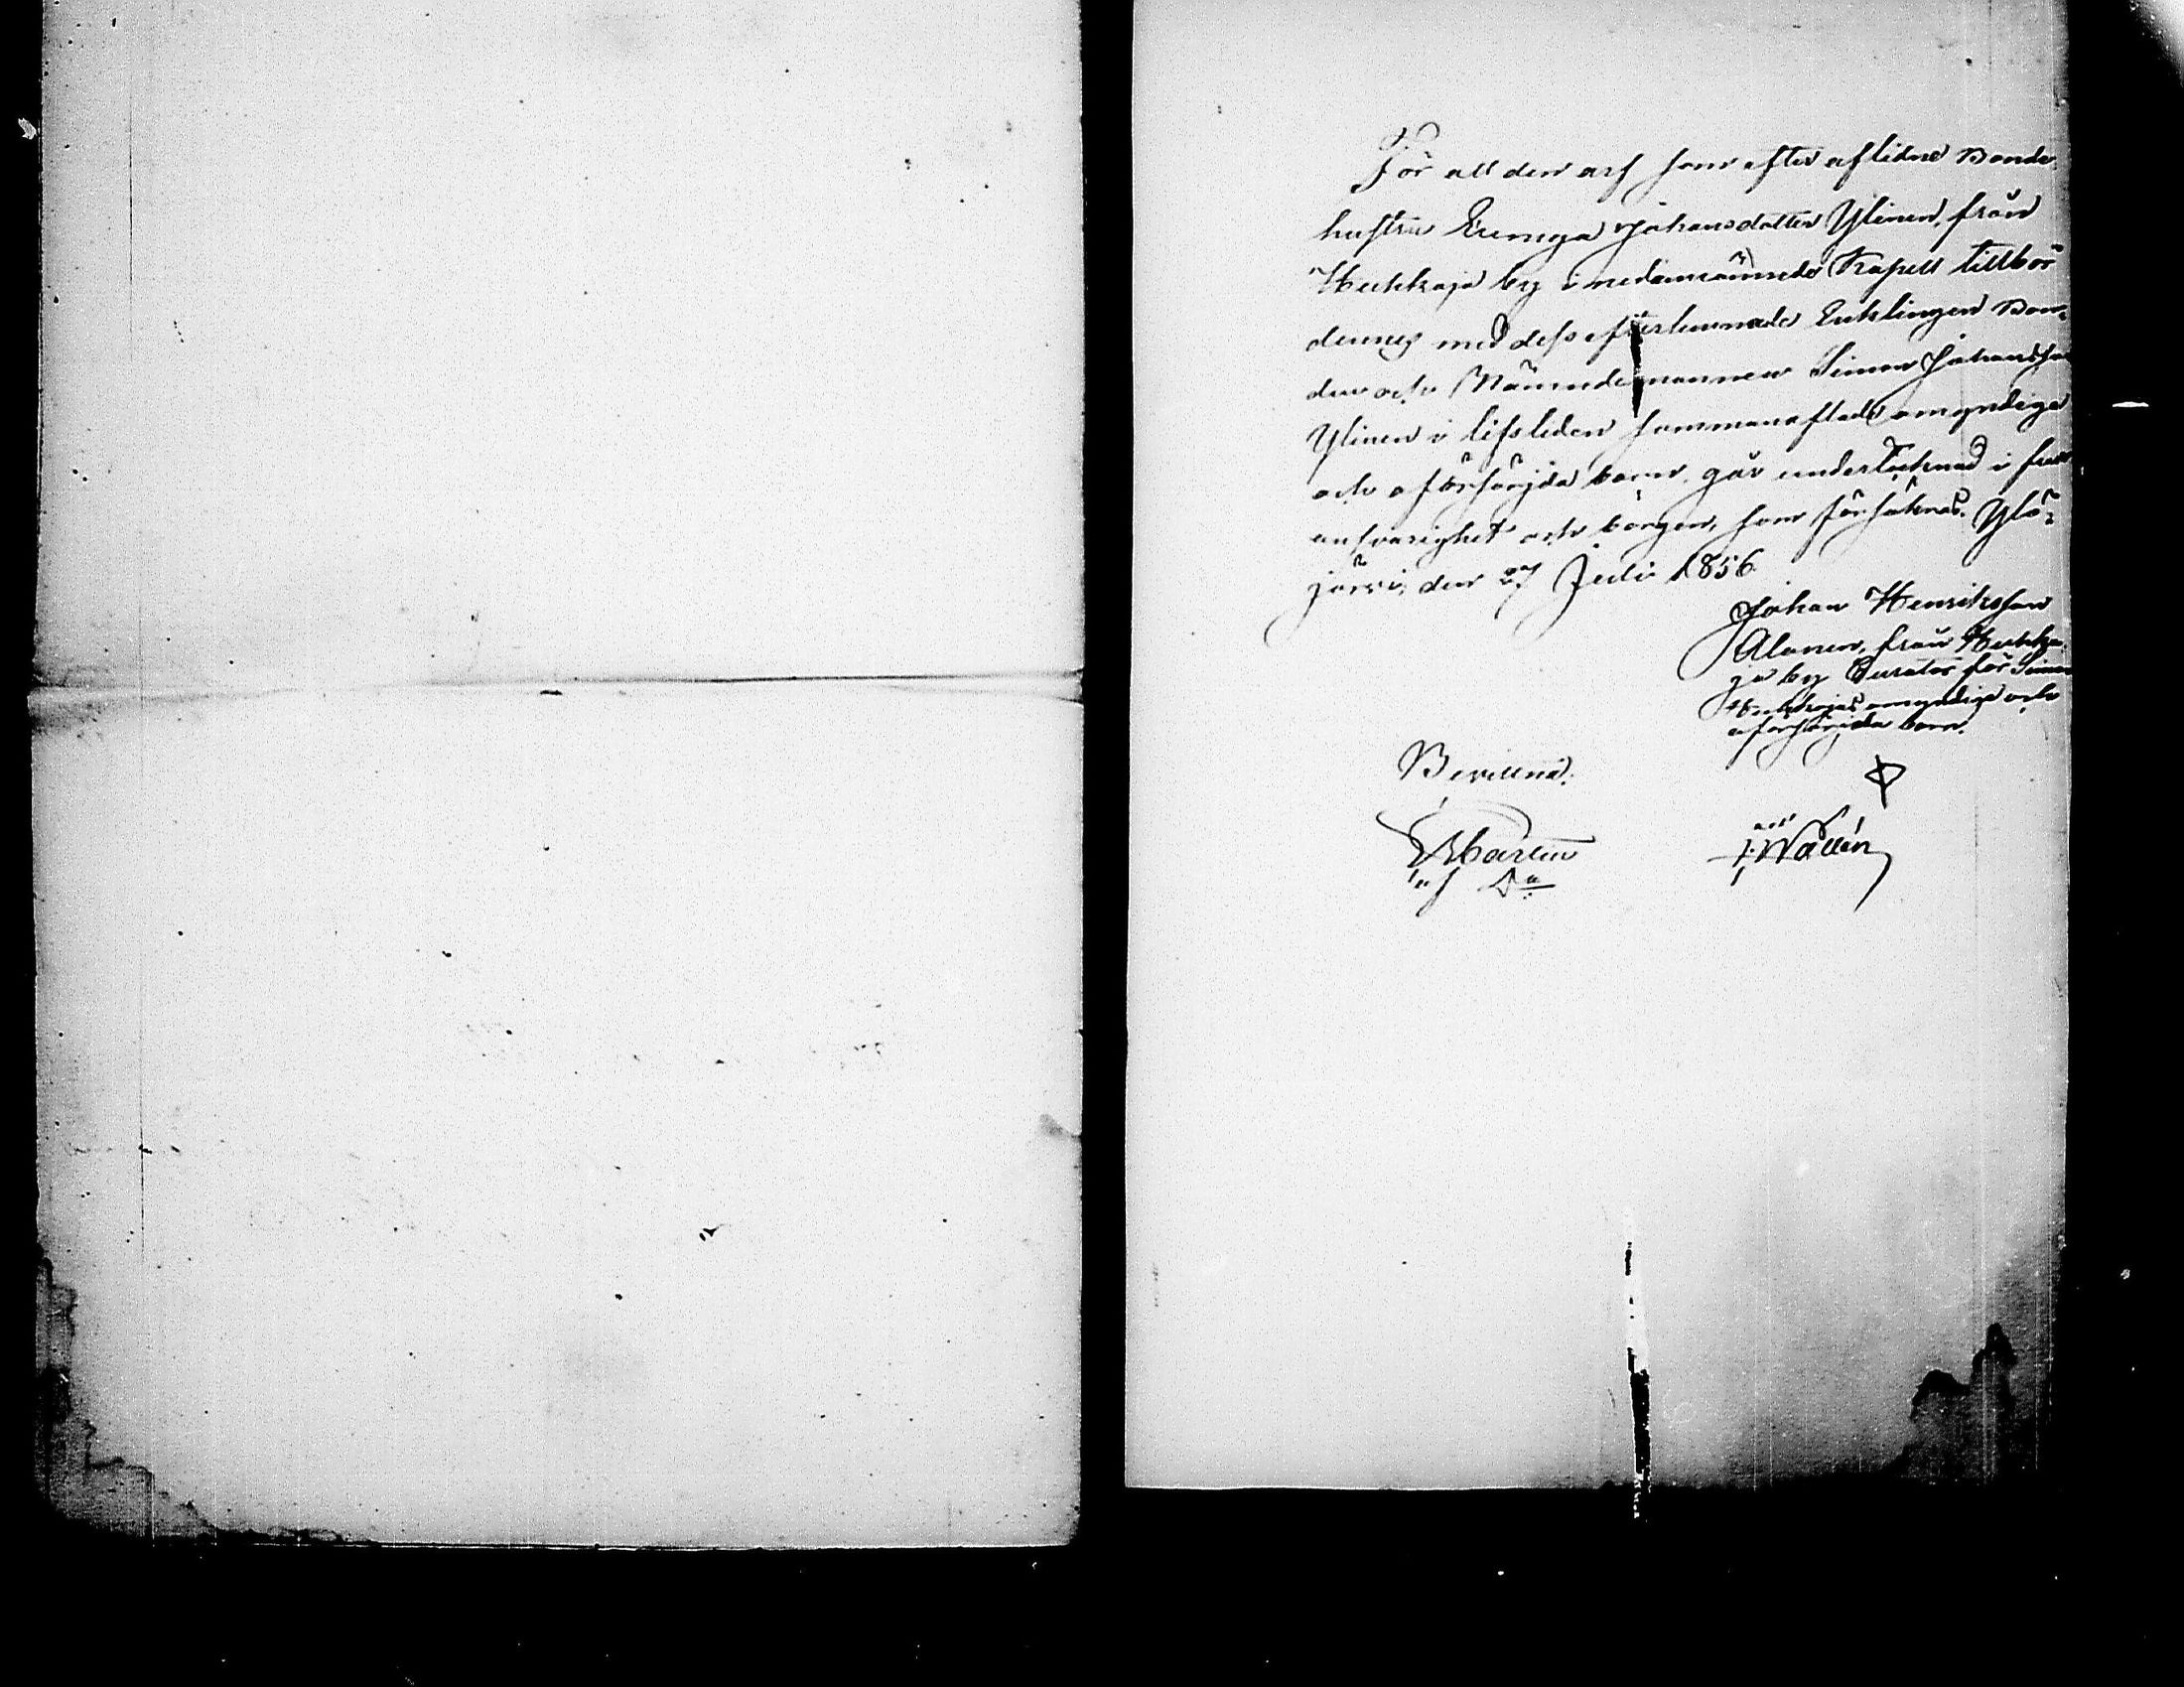 För all den arf som efter aflidne Bonde
hustru Eremga Johansdotter Ylinen, från
Heikkajo by i nedannämnde Kapell tillhör
dennes med dess efterlemnade Enklingen Bon=
den och Nämndemannen Simon Johansson
Ylinen i lifstiden sammanaflade omyndiga
och oförsörjda barn, går undertecknad i full
ansvarighet och borgen, som försäkras. Ylö=
järvi, den 27 Juli 1856.
Johan Henriksson
Alanen, från Heikka
jo by Curator för Simon
Heikkajos omyndige och
oförsörjda barn.
Bevittna:
Wallén